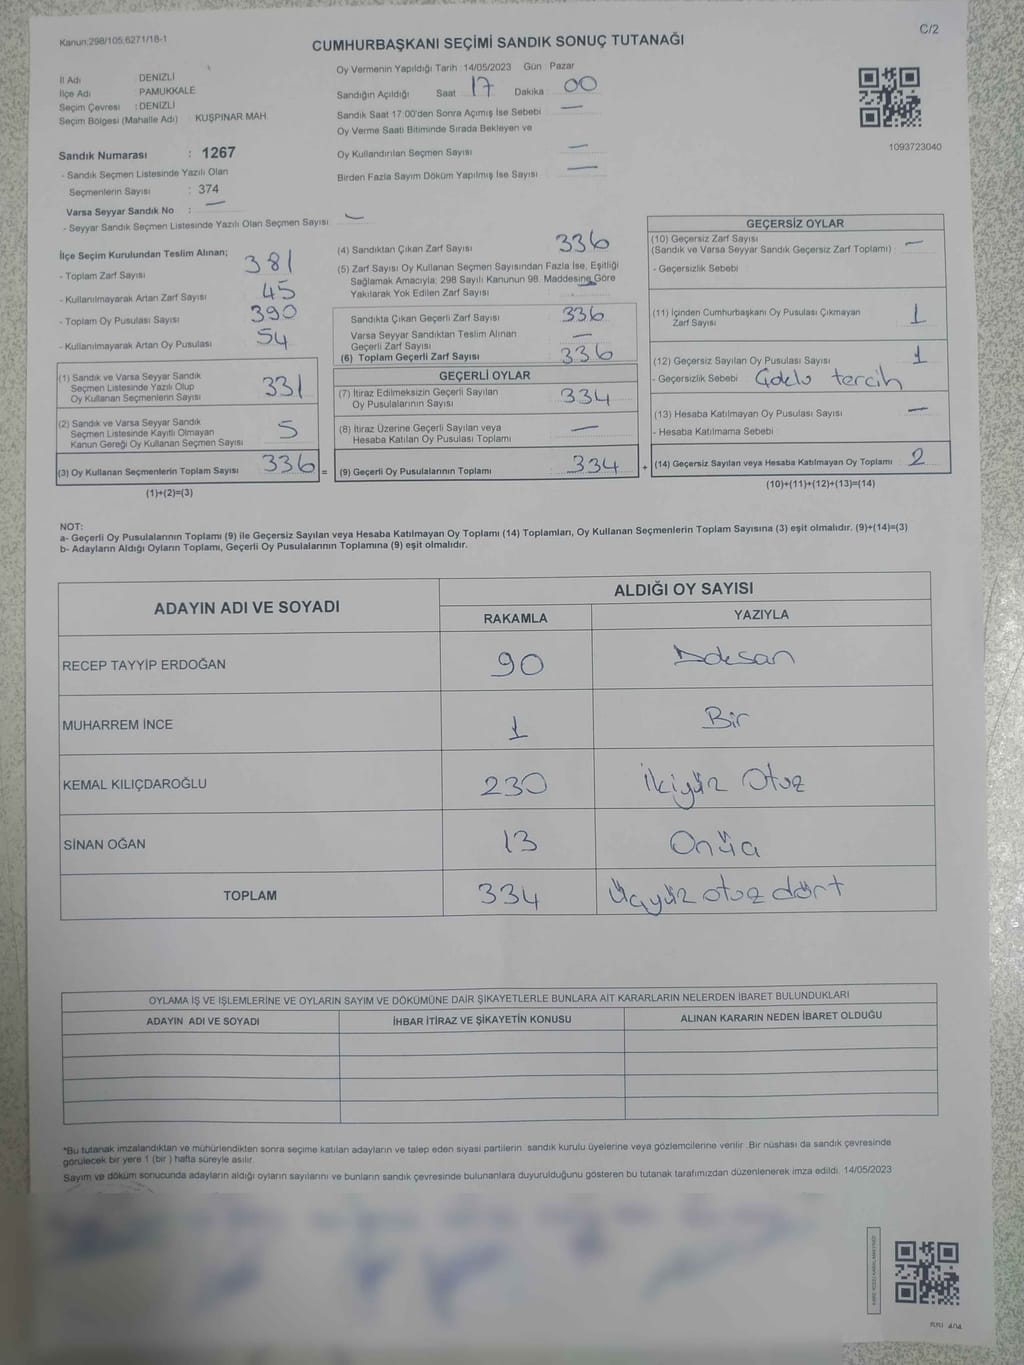 Kanun:298/105,6271/18-1
C/2
CUMHURBAŞKANI SEÇİMİ SANDIK SONUÇ TUTANAĞI
İl Adı DENİZLİ
İlçe Adı PAMUKKALE
Seçim Çevresi : DENİZLİ
Seçim Bölgesi (Mahalle Adı) KUŞPINAR MAH.
Sandık Numarası : 1267
- Sandık Seçmen Listesinde Yazılı Olan
Seçmenlerin Sayısı : 374
Varsa Seyyar Sandık No : —
- Seyyar Sandık Seçmen Listesinde Yazılı Olan Seçmen Sayısı —
Oy Vermenin Yapıldığı Tarih :14/05/2023 Gün Pazar
Sandığın Açıldığı Saat 17 Dakika : 00
Sandık Saat 17:00'den Sonra Açımış İse Sebebi —
Oy Verme Saati Bitiminde Sırada Bekleyen ve
Oy Kullandırılan Seçmen Sayısı —
Birden Fazla Sayım Döküm Yapılmış İse Sayısı —
1093723040
İlçe Seçim Kurulundan Teslim Alınan;
- Toplam Zarf Sayısı 381
- Kullanılmayarak Artan Zarf Sayısı 45
- Toplam Oy Pusulası Sayısı 390
- Kullanılmayarak Artan Oy Pusulası 54
(1) Sandık ve Varsa Seyyar Sandık
Seçmen Listesinde Yazılı Olup
Oy Kullanan Seçmenlerin Sayısı 331
(2) Sandık ve Varsa Seyyar Sandık
Seçmen Listesinde Kayıtlı Olmayan
Kanun Gereği Oy Kullanan Seçmen Sayısı 5
(3) Oy Kullanan Seçmenlerin Toplam Sayısı 336 =
(1)+(2)=(3)
(4) Sandıktan Çıkan Zarf Sayısı 336
(5) Zarf Sayısı Oy Kullanan Seçmen Sayısından Fazla İse, Eşitliği
Sağlamak Amacıyla; 298 Sayılı Kanunun 98. Maddesine Göre
Yakılarak Yok Edilen Zarf Sayısı —
Sandıkta Çıkan Geçerli Zarf Sayısı 336
Varsa Seyyar Sandıktan Teslim Alınan
Geçerli Zarf Sayısı —
(6) Toplam Geçerli Zarf Sayısı 336
GEÇERLİ OYLAR
(7) İtiraz Edilmeksizin Geçerli Sayılan
Oy Pusulalarının Sayısı 334
(8) İtiraz Üzerine Geçerli Sayılan veya
Hesaba Katılan Oy Pusulası Toplamı —
(9) Geçerli Oy Pusulalarının Toplamı 334 +
GEÇERSİZ OYLAR
(10) Geçersiz Zarf Sayısı
(Sandık ve Varsa Seyyar Sandık Geçersiz Zarf Toplamı) : —
- Geçersizlik Sebebi
(11) İçinden Cumhurbaşkanı Oy Pusulası Çıkmayan
Zarf Sayısı 1
(12) Geçersiz Sayılan Oy Pusulası Sayısı 1
- Geçersizlik Sebebi Çoklu tercih
(13) Hesaba Katılmayan Oy Pusulası Sayısı —
- Hesaba Katılmama Sebebi
(14) Geçersiz Sayılan veya Hesaba Katılmayan Oy Toplamı 2
(10)+(11)+(12)+(13)=(14)
NOT:
a- Geçerli Oy Pusulalarının Toplamı (9) ile Geçersiz Sayılan veya Hesaba Katılmayan Oy Toplamı (14) Toplamları, Oy Kullanan Seçmenlerin Toplam Sayısına (3) eşit olmalıdır. (9)+(14)=(3)
b- Adayların Aldığı Oyların Toplamı, Geçerli Oy Pusulalarının Toplamına (9) eşit olmalıdır.
ADAYIN ADI VE SOYADI
ALDIĞI OY SAYISI
RAKAMLA YAZIYLA
RECEP TAYYİP ERDOĞAN 90 Doksan
MUHARREM İNCE 1 Bir
KEMAL KILIÇDAROĞLU 230 İkiyüz Otuz
SİNAN OĞAN 13 Onüç
TOPLAM 334 Üçyüz otuz dört
OYLAMA İŞ VE İŞLEMLERİNE VE OYLARIN SAYIM VE DÖKÜMÜNE DAİR ŞİKAYETLERLE BUNLARA AİT KARARLARIN NELERDEN İBARET BULUNDUKLARI
ADAYIN ADI VE SOYADI İHBAR İTİRAZ VE ŞİKAYETİN KONUSU ALINAN KARARIN NEDEN İBARET OLDUĞU
*Bu tutanak imzalandıktan ve mühürlendikten sonra seçime katılan adayların ve talep eden siyasi partilerin sandık kurulu üyelerine veya gözlemcilerine verilir. Bir nüshası da sandık çevresinde
görülecek bir yere 1 (bir ) hafta süreyle asılır.
Sayım ve döküm sonucunda adayların aldığı oyların sayılarını ve bunların sandık çevresinde bulunanlara duyurulduğunu gösteren bu tutanak tarafımızdan düzenlenerek imza edildi. 14/05/2023